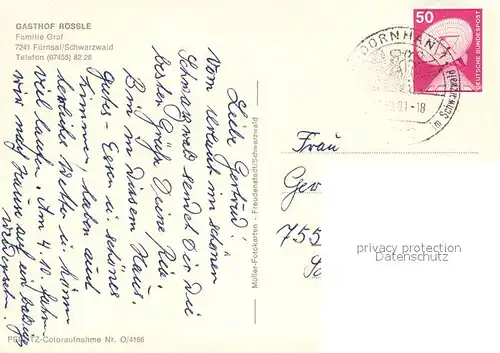 GASTHOF RÖSSLE
Familie Graf
7241 Fürnsal/Schwarzwald
Telefon (07455) 82 28
Liebe Gertrud!
Vom Urlaub im schönen
Schwarzwald sendet Dir die
besten Grüße Deine Ria.
Bin in diesem Haus.
Gutes Essen u. schönes
Zimmer, haben auch
herrliches Wetter u. können
viel laufen. Am 4.10. fahren
wir nach Hause auf ein baldiges
Wiedersehen.
Müller-Fotokarten - Freudenstadt/Schwarzwald
-Coloraufnahme Nr. O/4186
50
DEUTSCHE BUNDESPOST
DORNHAN 1
-18
Frau
Ger
755
privacy protection
Datenschutz